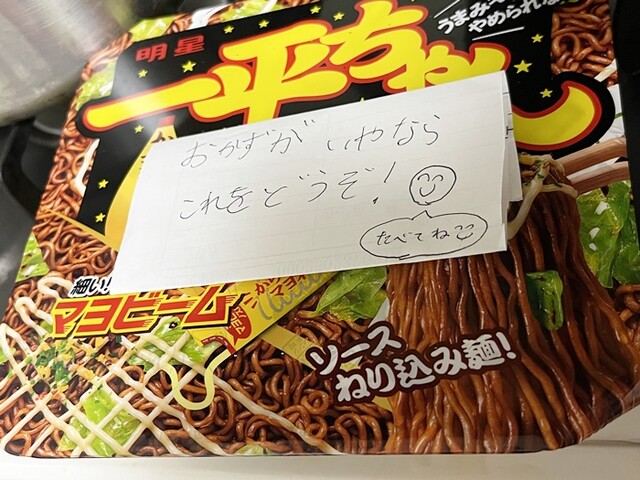 明星
一平ちゃん
うまみ
やめられな
おかずが いやなら
これをどうぞ!
たべてね
細い!
マヨビーム
ソース
ねり込み麺!